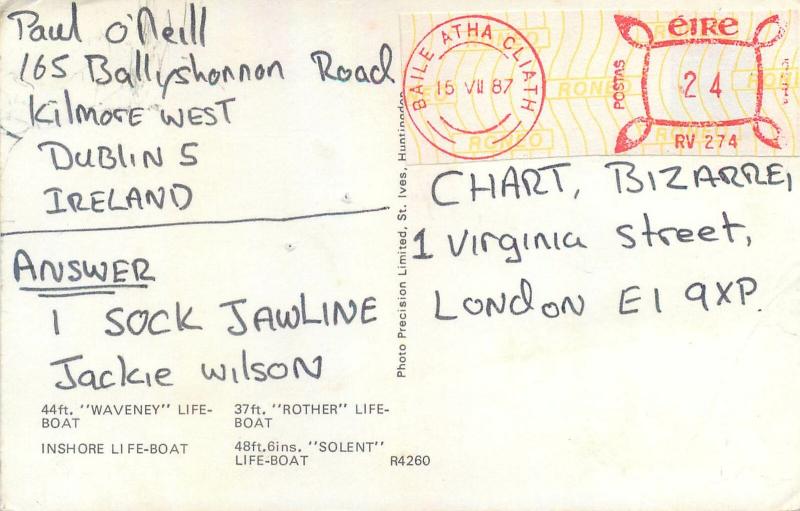 Paul O'Neill
165 Ballyshonnon Road
Kilmore WEST
DUBLIN 5
IRELAND
ANSWER
1 SOCK JAWLINE
Jackie Wilson
44ft. "WAVENEY" LIFE-
BOAT
INSHORE LIFE-BOAT
37ft. "ROTHER" LIFE-
BOAT
48ft.6ins. "SOLENT"
LIFE-BOAT
R4260
Photo Precision Limited, St. Ives, Huntingdon
BAILE ATHA CLIATH
15 VII 87
RONEO
RONEO
RONEO
RONEO
éIRE
POSTAS
24
RV 274
CHART, BIZARRE,
1 Virginia Street,
LONDON E1 9XP.